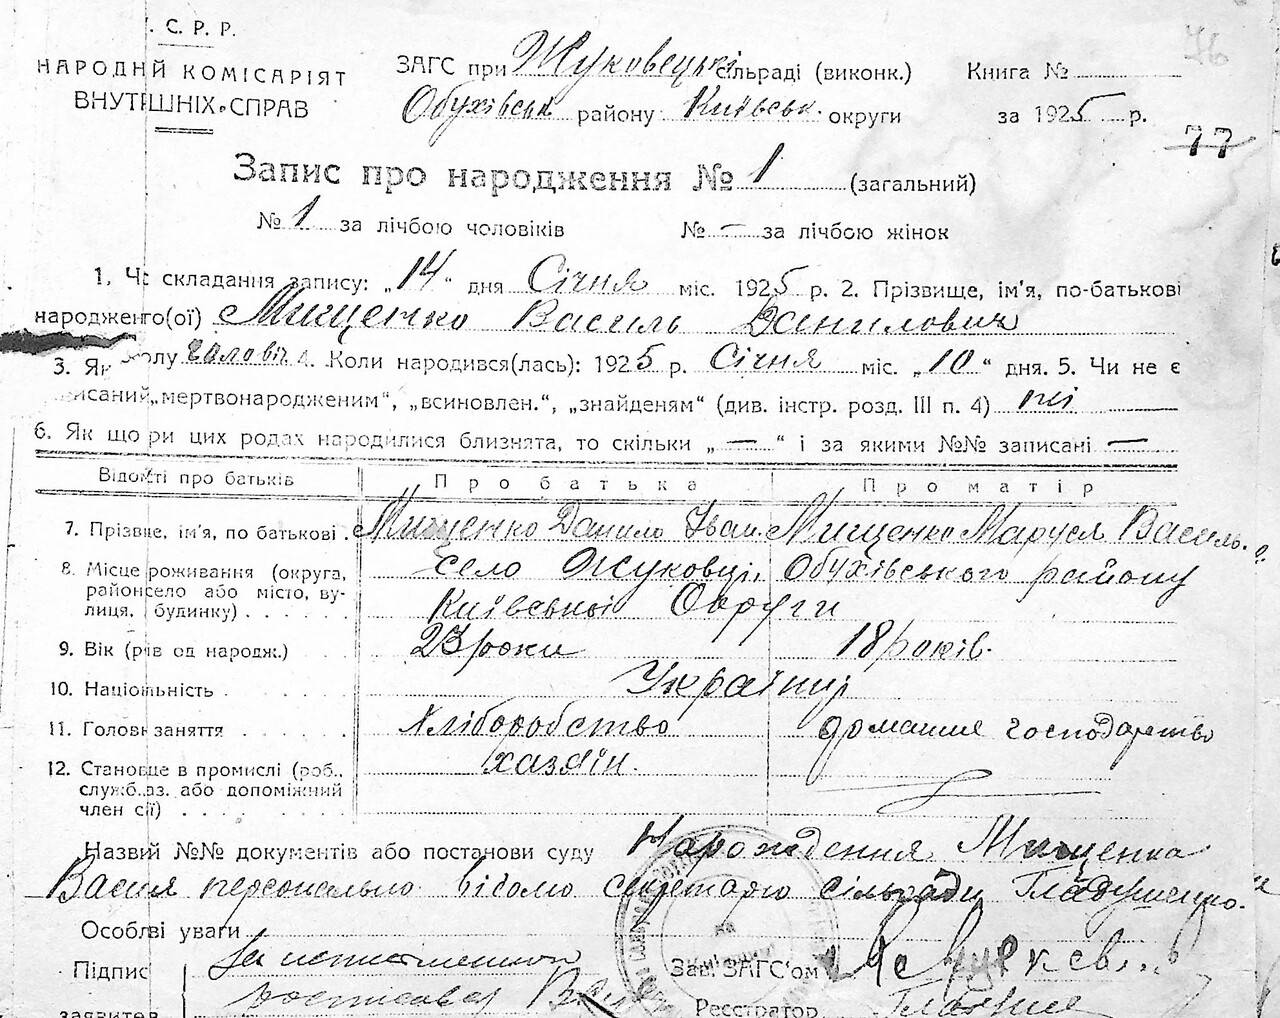 С. Р. Р.
НАРОДНІЙ КОМІСАРІЯТ
ВНУТРІШНІХ СПРАВ
76
ЗАГС при Жуковецькі сільраді (виконк.) Книга №
Обухівськ району Київськ. округи за 1925 р.
77
Запис про народження № 1 (загальний)
№ 1 за лічбою чоловіків № — за лічбою жінок
1. Ч складання запису: „14“ дня Січня міс. 1925 р. 2. Прізвище, ім'я, по-батькові
народженого(ої) Мищенко Василь Данилович
3. Як чоловіч 4. Коли народився(лась): 1925 р. Січня міс. „10“ дня. 5. Чи не є
писаний „мертвонародженим“, „всиновлен.“, „знайденям“ (див. інстр. розд. III п. 4) ні
6. Як що при цих родах народилися близнята, то скільки „—“ і за якими №№ записані —
Відомості про батьків Про батька Про матір
7. Прізвище, ім'я, по батькові Мищенко Данило Іван. Мищенко Маруся Василь.
8. Місце проживання (округа, район, село або місто, вулиця, будинку) село Жуковці, Обухівського району
Київської Округи
9. Вік (років од народж.) 23 роки 18 років.
10. Національність Українці
11. Головне заняття Хліборобство домашне господарство
12. Становище в промислі (роб., служб., хаз. або допоміжний член сім'ї) хазяїн. —
Назви й №№ документів або постанови суду Народження Мищенка
Василя персонально відомо секретарю сільради Гладушенко.
Особливі уваги
Підпис За неписьменного Зав. ЗАГС'ом
заявитєв росписався Реєстратор